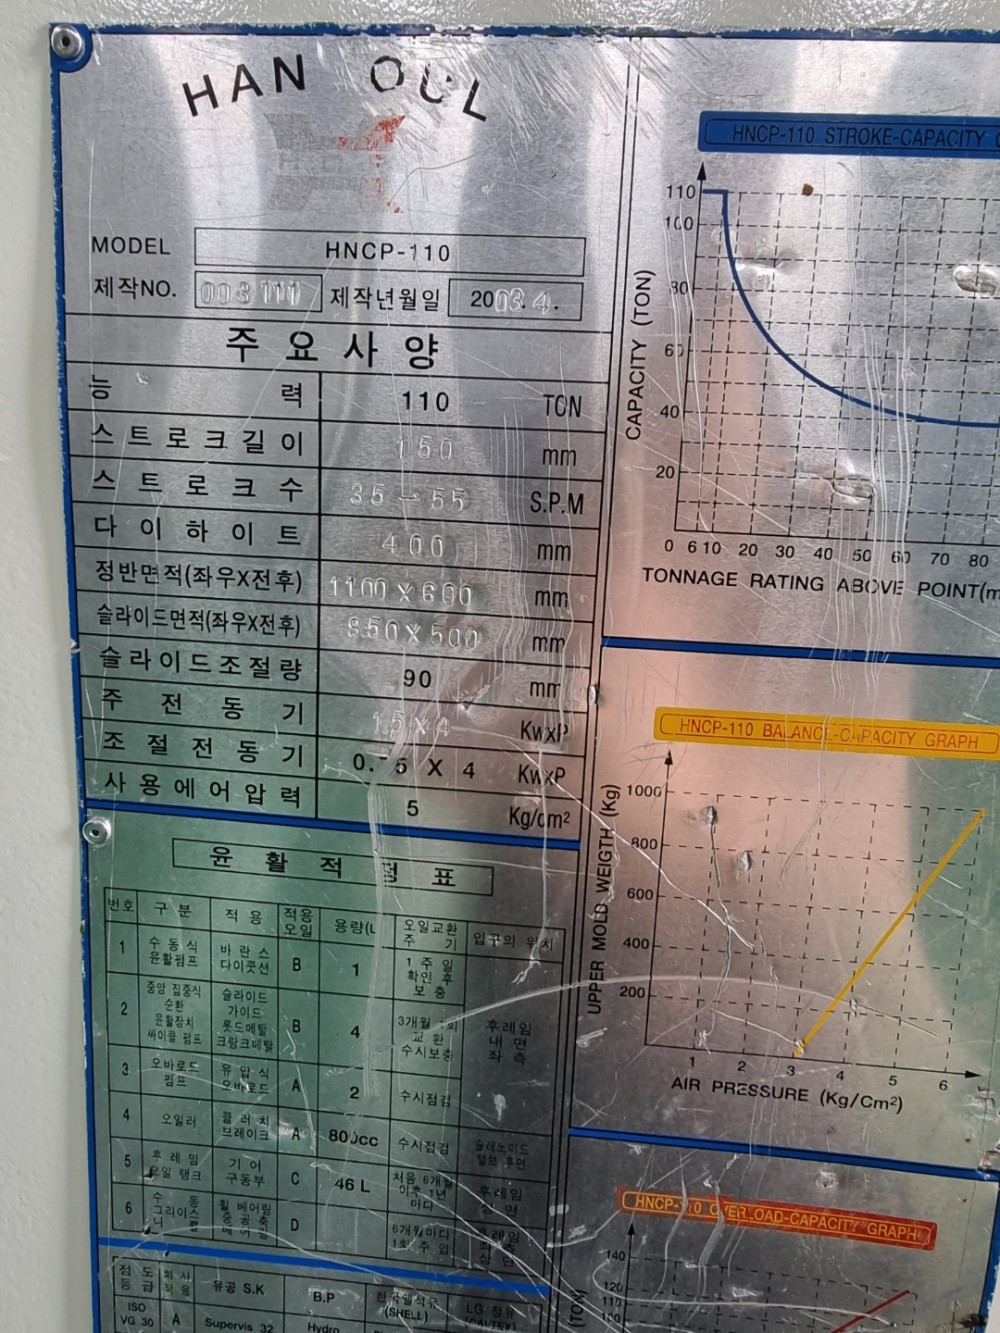 HAN OUL
MODEL HNCP-110
제작NO. 003111 제작년월일 2003.4.
주요사양
능력 110 TON
스트로크길이 150 mm
스트로크수 35-55 S.P.M
다이하이트 400 mm
정반면적(좌우X전후) 1100x600 mm
슬라이드면적(좌우X전후) 850X500 mm
슬라이드조절량 90 mm
주전동기 KwxP
조절전동기 0.75 X 4 KwxP
사용에어압력 5 Kg/cm²
윤활적정표
번호 구분 적용 적용오일 용량(L 오일교환주기 입구의 위치
1 수동식 윤활펌프 바란스 다이쿳션 B 1 1주일 확인후 보충
2 중앙 집중식 순환 윤활장치 싸이클 펌프 슬라이드 가이드 롯드메탈 크랑크메탈 B 4 3개월 교환 수시보충 후레임 내면 좌측
3 오바로드 펌프 유압식 오바로드 A 2 수시점검
4 오일러 클러치 브레이크 A 800cc 수시점검 슬레노이드 밸브 후면
5 후레임 오일 탱크 기어 구동부 C 46 L 처음 6개월 이후 1년 마다 후레임 상면
6 수동 그리이스 휠 베어링 중공축 베어링 D 6개월마다 1회 주입 후레임 좌측 상면
점도 등급 회사 적용 유공 S.K B.P 한국쉘석유 (SHELL) LG 정유 (CALTEX)
ISO VG 30 A Supervis 32 Hydro
HNCP-110 STROKE-CAPACITY
CAPACITY (TON)
110
100
80
60
40
20
0 6 10 20 30 40 50 60 70 80
TONNAGE RATING ABOVE POINT(m
HNCP-110 BALANCE-CAPACITY GRAPH
UPPER MOLD WEIGTH (Kg)
1000
800
600
400
200
1 2 3 4 5 6
AIR PRESSURE (Kg/Cm²)
HNCP-110 OVERLOAD-CAPACITY GRAPH
140
120
110
100
(TON)